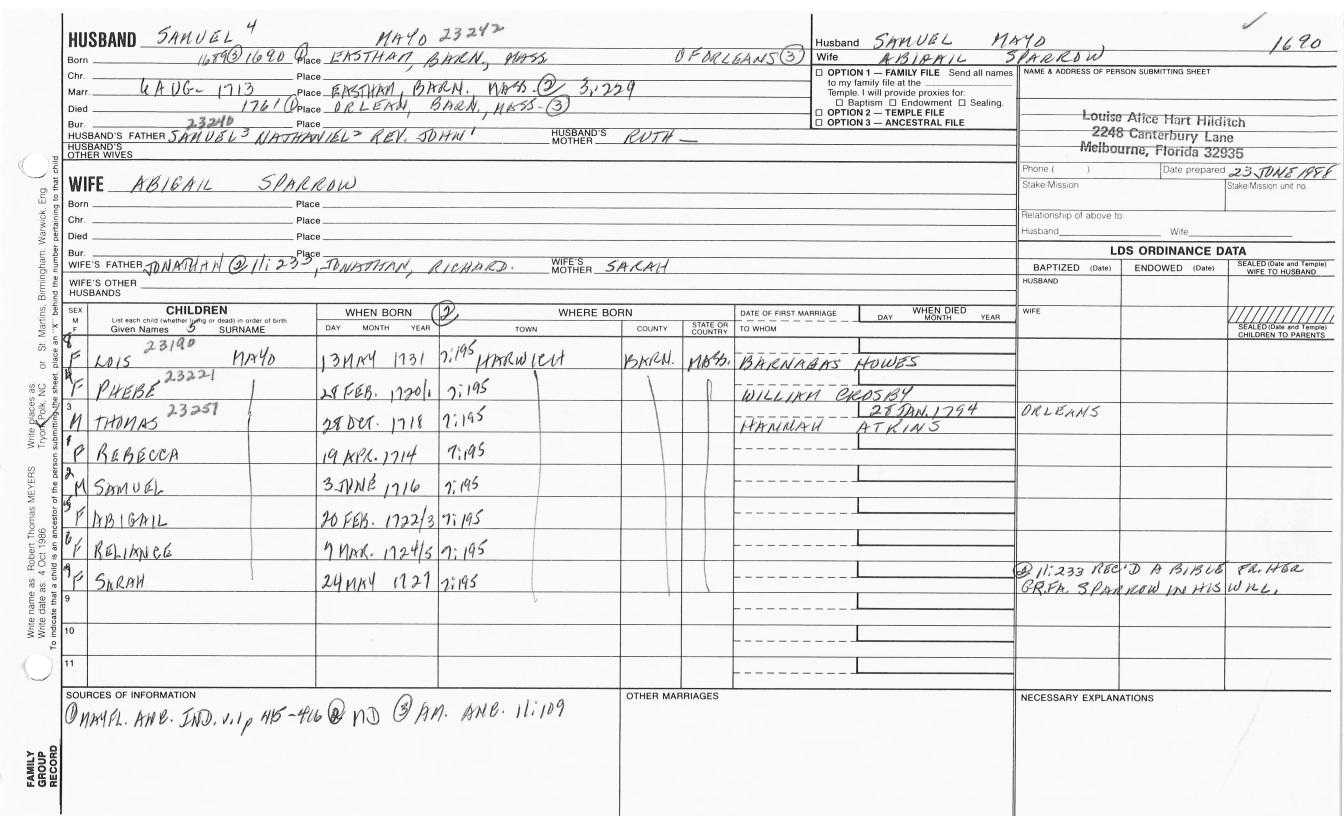 HUSBAND SAMUEL 4 MAYO 23242
Born 1689 ③ 1690 ① Place EASTHAM, BARN., MASS OF ORLEANS ③
Chr. Place
Marr. 6 AUG- 1713 Place EASTHAM, BARN. MASS. ② 3:229
Died 1761 ① Place ORLEAN, BARN., MASS- ③
Bur. 23240
HUSBAND'S FATHER SAMUEL³ NATHANIEL² REV. JOHN¹ HUSBAND'S MOTHER RUTH —
HUSBAND'S OTHER WIVES
WIFE ABIGAIL SPARROW
Born Place
Chr. Place
Died Place
Bur. Place
WIFE'S FATHER JONATHAN ② 11:233, JONATHAN, RICHARD. WIFE'S MOTHER SARAH
WIFE'S OTHER HUSBANDS
Husband SAMUEL MAYO 1690
Wife ABIGAIL SPARROW
☐ OPTION 1 — FAMILY FILE Send all names
to my family file at the
Temple. I will provide proxies for:
☐ Baptism ☐ Endowment ☐ Sealing.
☐ OPTION 2 — TEMPLE FILE
☐ OPTION 3 — ANCESTRAL FILE
NAME & ADDRESS OF PERSON SUBMITTING SHEET
Louise Alice Hart Hilditch
2248 Canterbury Lane
Melbourne, Florida 32935
Phone ( ) Date prepared 23 JUNE 1988
Stake-Mission Stake-Mission unit no.
Relationship of above to:
Husband Wife
LDS ORDINANCE DATA
BAPTIZED (Date) ENDOWED (Date) SEALED (Date and Temple) WIFE TO HUSBAND
HUSBAND
WIFE
SEALED (Date and Temple) CHILDREN TO PARENTS
SEX M F CHILDREN WHEN BORN ② WHERE BORN DATE OF FIRST MARRIAGE WHEN DIED
List each child (whether living or dead) in order of birth
Given Names 5 SURNAME DAY MONTH YEAR TOWN COUNTY STATE OR COUNTRY TO WHOM DAY MONTH YEAR
8 F LOIS 23190 MAYO 13 MAY 1731 7:195 HARWICH BARN. MASS. BARNABAS HOWES
4 F PHEBE 23221 28 FEB. 1720/1 7:195 WILLIAM CROSBY
3 M THOMAS 23251 28 OCT. 1718 7:195 HANNAH ATKINS 28 JAN. 1794 ORLEANS
1 F REBECCA 19 APR. 1714 7:195
2 M SAMUEL 3 JUNE 1716 7:195
5 F ABIGAIL 20 FEB. 1722/3 7:195
6 F RELIANCE 7 MAR. 1724/5 7:195
7 F SARAH 24 MAY 1727 7:195
② 11:233 REC'D A BIBLE FR. HER
GR.FA. SPARROW IN HIS WILL.
9
10
11
SOURCES OF INFORMATION
① MAYFL. ANC. IND. v.1 p 415-416 ② MD ③ AM. ANC. 11:109
OTHER MARRIAGES
NECESSARY EXPLANATIONS
Write name as Robert Thomas MEYERS Write places as Tryon, Polk, NC or St Martins, Birmingham, Warwick, Eng
Write date as 4 Oct 1986
To indicate that a child is an ancestor of the person submitting the sheet, place an "X" behind the number pertaining to that child
FAMILY GROUP RECORD